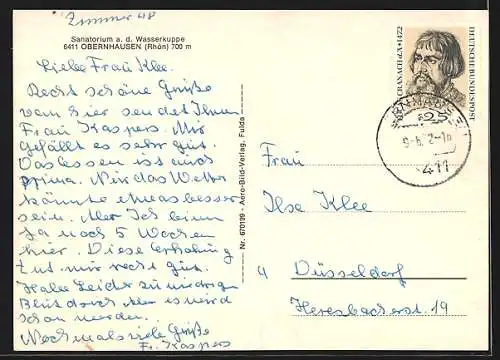 Zimmer 48
Sanatorium a. d. Wasserkuppe
6411 OBERNHAUSEN (Rhön) 700 m
Liebe Frau Klee.
Recht schöne Grüße
von hier sendet Ihnen
Frau Kaspers. Mir
gefällt es sehr gut.
Das essen ist auch
prima. Nur das Wetter
könnte etwas besser
sein. Aber Ich bin
ja noch 5 Wochen
hier. Diese Erholung
tut mir recht gut.
Habe Leider zu niedrigen
Blutdruck Aber es wird
schon werden.
Nochmals viele Grüße
Fr. Kaspers
Nr. 670139 - Aero-Bild-Verlag, Fulda
LUCAS CRANACH d.Ä. * 1472
DEUTSCHE BUNDESPOST
25
6411
Frau
Ilse Klee
4 Düsseldorf
Heresbachstr. 19